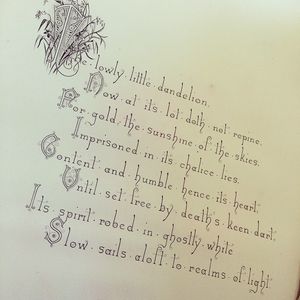 The · lowly · little · dandelion,
Now · at · its · lot · doth · not · repine,
For · gold · the · sunshine · of · the · skies,
Imprisoned · in · its · chalice · lies,
Content · and · humble · hence · its · heart,
Until · set · free · by · death's · keen · dart,
Its · spirit · robed · in · ghostly · white
Slow · sails · aloft · to · realms · of · light.